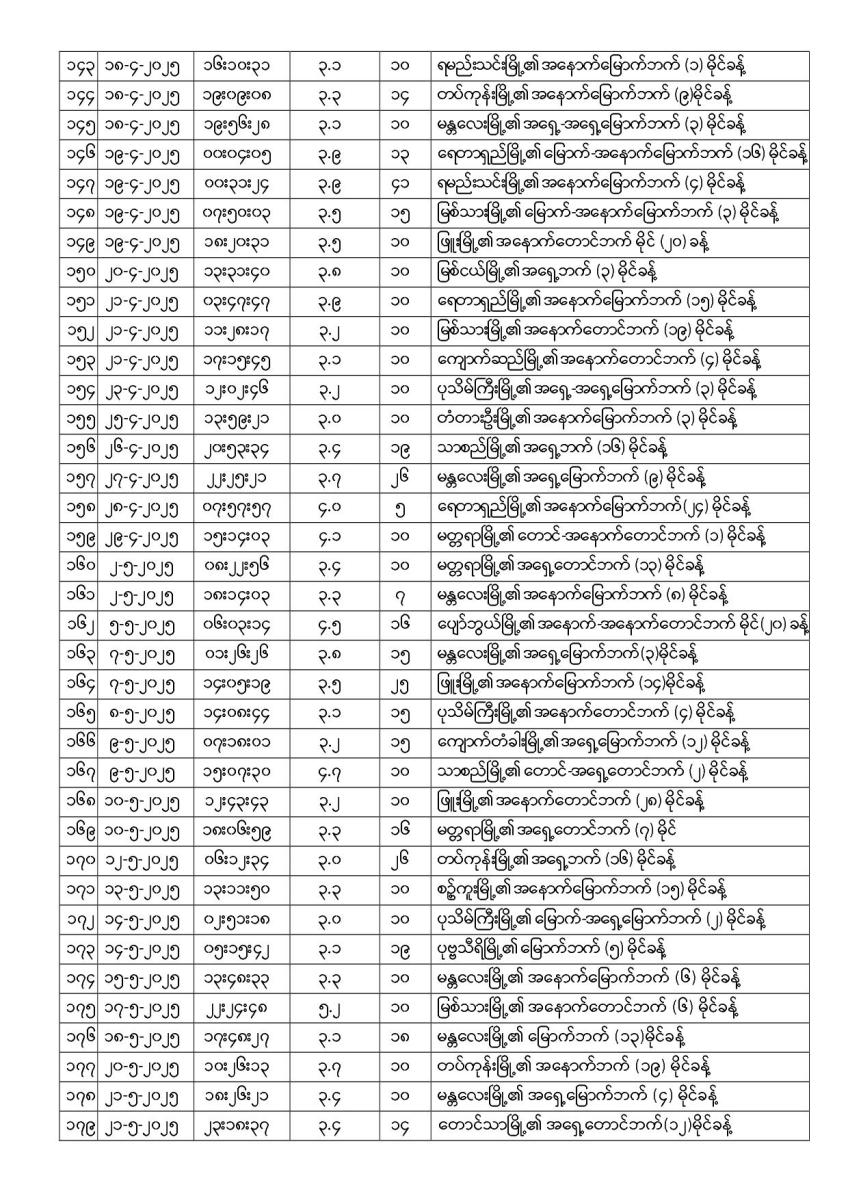 ၁၄၃ ၁၈-၄-၂၀၂၅ ၁၆း၁၀း၃၁ ၃.၁ ၁၀ ရမည်းသင်းမြို့၏ အနောက်မြောက်ဘက် (၁) မိုင်ခန့်
၁၄၄ ၁၈-၄-၂၀၂၅ ၁၉း၀၉း၀၈ ၃.၃ ၁၄ တပ်ကုန်းမြို့၏ အနောက်မြောက်ဘက် (၉)မိုင်ခန့်
၁၄၅ ၁၈-၄-၂၀၂၅ ၁၉း၅၆း၂၈ ၃.၁ ၁၀ မန္တလေးမြို့၏ အရှေ့-အရှေ့မြောက်ဘက် (၃) မိုင်ခန့်
၁၄၆ ၁၉-၄-၂၀၂၅ ၀၀း၀၄း၀၅ ၃.၉ ၁၃ ရေတာရှည်မြို့၏ မြောက်-အနောက်မြောက်ဘက် (၁၆) မိုင်ခန့်
၁၄၇ ၁၉-၄-၂၀၂၅ ၀၀း၃၁း၂၄ ၃.၉ ၄၁ ရမည်းသင်းမြို့၏ အနောက်မြောက်ဘက် (၄) မိုင်ခန့်
၁၄၈ ၁၉-၄-၂၀၂၅ ၀၇း၅၀း၀၃ ၃.၅ ၁၅ မြစ်သားမြို့၏ မြောက်-အနောက်မြောက်ဘက် (၃) မိုင်ခန့်
၁၄၉ ၁၉-၄-၂၀၂၅ ၁၈း၂၀း၃၁ ၃.၅ ၁၀ ဖြူးမြို့၏ အနောက်တောင်ဘက် မိုင် (၂၀) ခန့်
၁၅၀ ၂၀-၄-၂၀၂၅ ၁၃း၃၁း၄၀ ၃.၈ ၁၀ မြစ်ငယ်မြို့၏ အရှေ့ဘက် (၃) မိုင်ခန့်
၁၅၁ ၂၁-၄-၂၀၂၅ ၀၃း၄၇း၄၇ ၃.၉ ၁၀ ရေတာရှည်မြို့၏ အနောက်မြောက်ဘက် (၁၅) မိုင်ခန့်
၁၅၂ ၂၁-၄-၂၀၂၅ ၁၁း၂၈း၁၇ ၃.၂ ၁၀ မြစ်သားမြို့၏ အနောက်တောင်ဘက် (၁၉) မိုင်ခန့်
၁၅၃ ၂၁-၄-၂၀၂၅ ၁၇း၁၅း၄၅ ၃.၁ ၁၀ ကျောက်ဆည်မြို့၏ အနောက်တောင်ဘက် (၄) မိုင်ခန့်
၁၅၄ ၂၃-၄-၂၀၂၅ ၁၂း၀၂း၄၆ ၃.၂ ၁၀ ပုသိမ်ကြီးမြို့၏ အရှေ့-အရှေ့မြောက်ဘက် (၃) မိုင်ခန့်
၁၅၅ ၂၅-၄-၂၀၂၅ ၁၃း၅၉း၂၁ ၃.၀ ၁၀ တံတားဦးမြို့၏ အနောက်မြောက်ဘက် (၃) မိုင်ခန့်
၁၅၆ ၂၆-၄-၂၀၂၅ ၂၀း၅၃း၃၄ ၃.၄ ၁၉ သာစည်မြို့၏ အရှေ့ဘက် (၁၆) မိုင်ခန့်
၁၅၇ ၂၇-၄-၂၀၂၅ ၂၂း၂၅း၂၁ ၃.၇ ၂၆ မန္တလေးမြို့၏ အရှေ့မြောက်ဘက် (၉) မိုင်ခန့်
၁၅၈ ၂၈-၄-၂၀၂၅ ၀၇း၅၇း၅၇ ၄.၀ ၅ ရေတာရှည်မြို့၏ အနောက်မြောက်ဘက်(၂၄) မိုင်ခန့်
၁၅၉ ၂၉-၄-၂၀၂၅ ၁၅း၁၄း၀၃ ၄.၁ ၁၀ မတ္တရာမြို့၏ တောင်-အနောက်တောင်ဘက် (၁) မိုင်ခန့်
၁၆၀ ၂-၅-၂၀၂၅ ၀၈း၂၂း၅၆ ၃.၄ ၁၀ မတ္တရာမြို့၏ အရှေ့တောင်ဘက် (၁၃) မိုင်ခန့်
၁၆၁ ၂-၅-၂၀၂၅ ၁၈း၁၄း၀၃ ၃.၃ ၇ မန္တလေးမြို့၏ အနောက်မြောက်ဘက် (၈) မိုင်ခန့်
၁၆၂ ၅-၅-၂၀၂၅ ၀၆း၀၃း၁၄ ၄.၅ ၁၆ ပျော်ဘွယ်မြို့၏ အနောက်-အနောက်တောင်ဘက် မိုင်(၂၀) ခန့်
၁၆၃ ၇-၅-၂၀၂၅ ၀၁း၂၆း၂၆ ၃.၈ ၁၅ မန္တလေးမြို့၏ အရှေ့မြောက်ဘက်(၃)မိုင်ခန့်
၁၆၄ ၇-၅-၂၀၂၅ ၁၄း၀၅း၁၉ ၃.၅ ၂၅ ဖြူးမြို့၏ အနောက်မြောက်ဘက် (၁၄)မိုင်ခန့်
၁၆၅ ၈-၅-၂၀၂၅ ၁၄း၀၈း၄၄ ၃.၁ ၁၅ ပုသိမ်ကြီးမြို့၏ အနောက်တောင်ဘက် (၄) မိုင်ခန့်
၁၆၆ ၉-၅-၂၀၂၅ ၀၇း၁၈း၀၁ ၃.၂ ၁၅ ကျောက်တံခါးမြို့၏ အရှေ့မြောက်ဘက် (၁၂) မိုင်ခန့်
၁၆၇ ၉-၅-၂၀၂၅ ၁၅း၀၇း၃၀ ၄.၇ ၁၀ သာစည်မြို့၏ တောင်-အရှေ့တောင်ဘက် (၂) မိုင်ခန့်
၁၆၈ ၁၀-၅-၂၀၂၅ ၁၂း၄၃း၄၃ ၃.၂ ၁၀ ဖြူးမြို့၏ အနောက်တောင်ဘက် (၂၈) မိုင်ခန့်
၁၆၉ ၁၀-၅-၂၀၂၅ ၁၈း၀၆း၅၉ ၃.၃ ၁၆ မတ္တရာမြို့၏ အရှေ့တောင်ဘက် (၇) မိုင်
၁၇၀ ၁၂-၅-၂၀၂၅ ၀၆း၁၂း၃၄ ၃.၀ ၂၆ တပ်ကုန်းမြို့၏ အရှေ့ဘက် (၁၆) မိုင်ခန့်
၁၇၁ ၁၃-၅-၂၀၂၅ ၁၃း၁၁း၅၀ ၃.၃ ၁၀ စဉ့်ကူးမြို့၏ အနောက်မြောက်ဘက် (၁၅) မိုင်ခန့်
၁၇၂ ၁၄-၅-၂၀၂၅ ၀၂း၅၁း၁၈ ၃.၀ ၁၀ ပုသိမ်ကြီးမြို့၏ မြောက်-အရှေ့မြောက်ဘက် (၂) မိုင်ခန့်
၁၇၃ ၁၄-၅-၂၀၂၅ ၀၅း၁၅း၄၂ ၃.၁ ၁၉ ပုဗ္ဗသီရိမြို့၏ မြောက်ဘက် (၅) မိုင်ခန့်
၁၇၄ ၁၅-၅-၂၀၂၅ ၁၃း၄၈း၃၃ ၃.၃ ၁၀ မန္တလေးမြို့၏ အနောက်မြောက်ဘက် (၆) မိုင်ခန့်
၁၇၅ ၁၇-၅-၂၀၂၅ ၂၂း၂၄း၄၈ ၅.၂ ၁၀ မြစ်သားမြို့၏ အနောက်တောင်ဘက် (၆) မိုင်ခန့်
၁၇၆ ၁၈-၅-၂၀၂၅ ၁၇း၄၈း၂၇ ၃.၁ ၁၈ မန္တလေးမြို့၏ မြောက်ဘက် (၁၃)မိုင်ခန့်
၁၇၇ ၂၀-၅-၂၀၂၅ ၁၀း၂၆း၁၃ ၃.၇ ၁၀ တပ်ကုန်းမြို့၏ အနောက်တောင်ဘက် (၁၉) မိုင်ခန့်
၁၇၈ ၂၁-၅-၂၀၂၅ ၁၈း၂၆း၂၁ ၃.၄ ၁၀ မန္တလေးမြို့၏ အရှေ့မြောက်ဘက် (၄) မိုင်ခန့်
၁၇၉ ၂၁-၅-၂၀၂၅ ၂၃း၁၈း၃၇ ၃.၄ ၁၄ တောင်သာမြို့၏ အရှေ့တောင်ဘက်(၁၂)မိုင်ခန့်